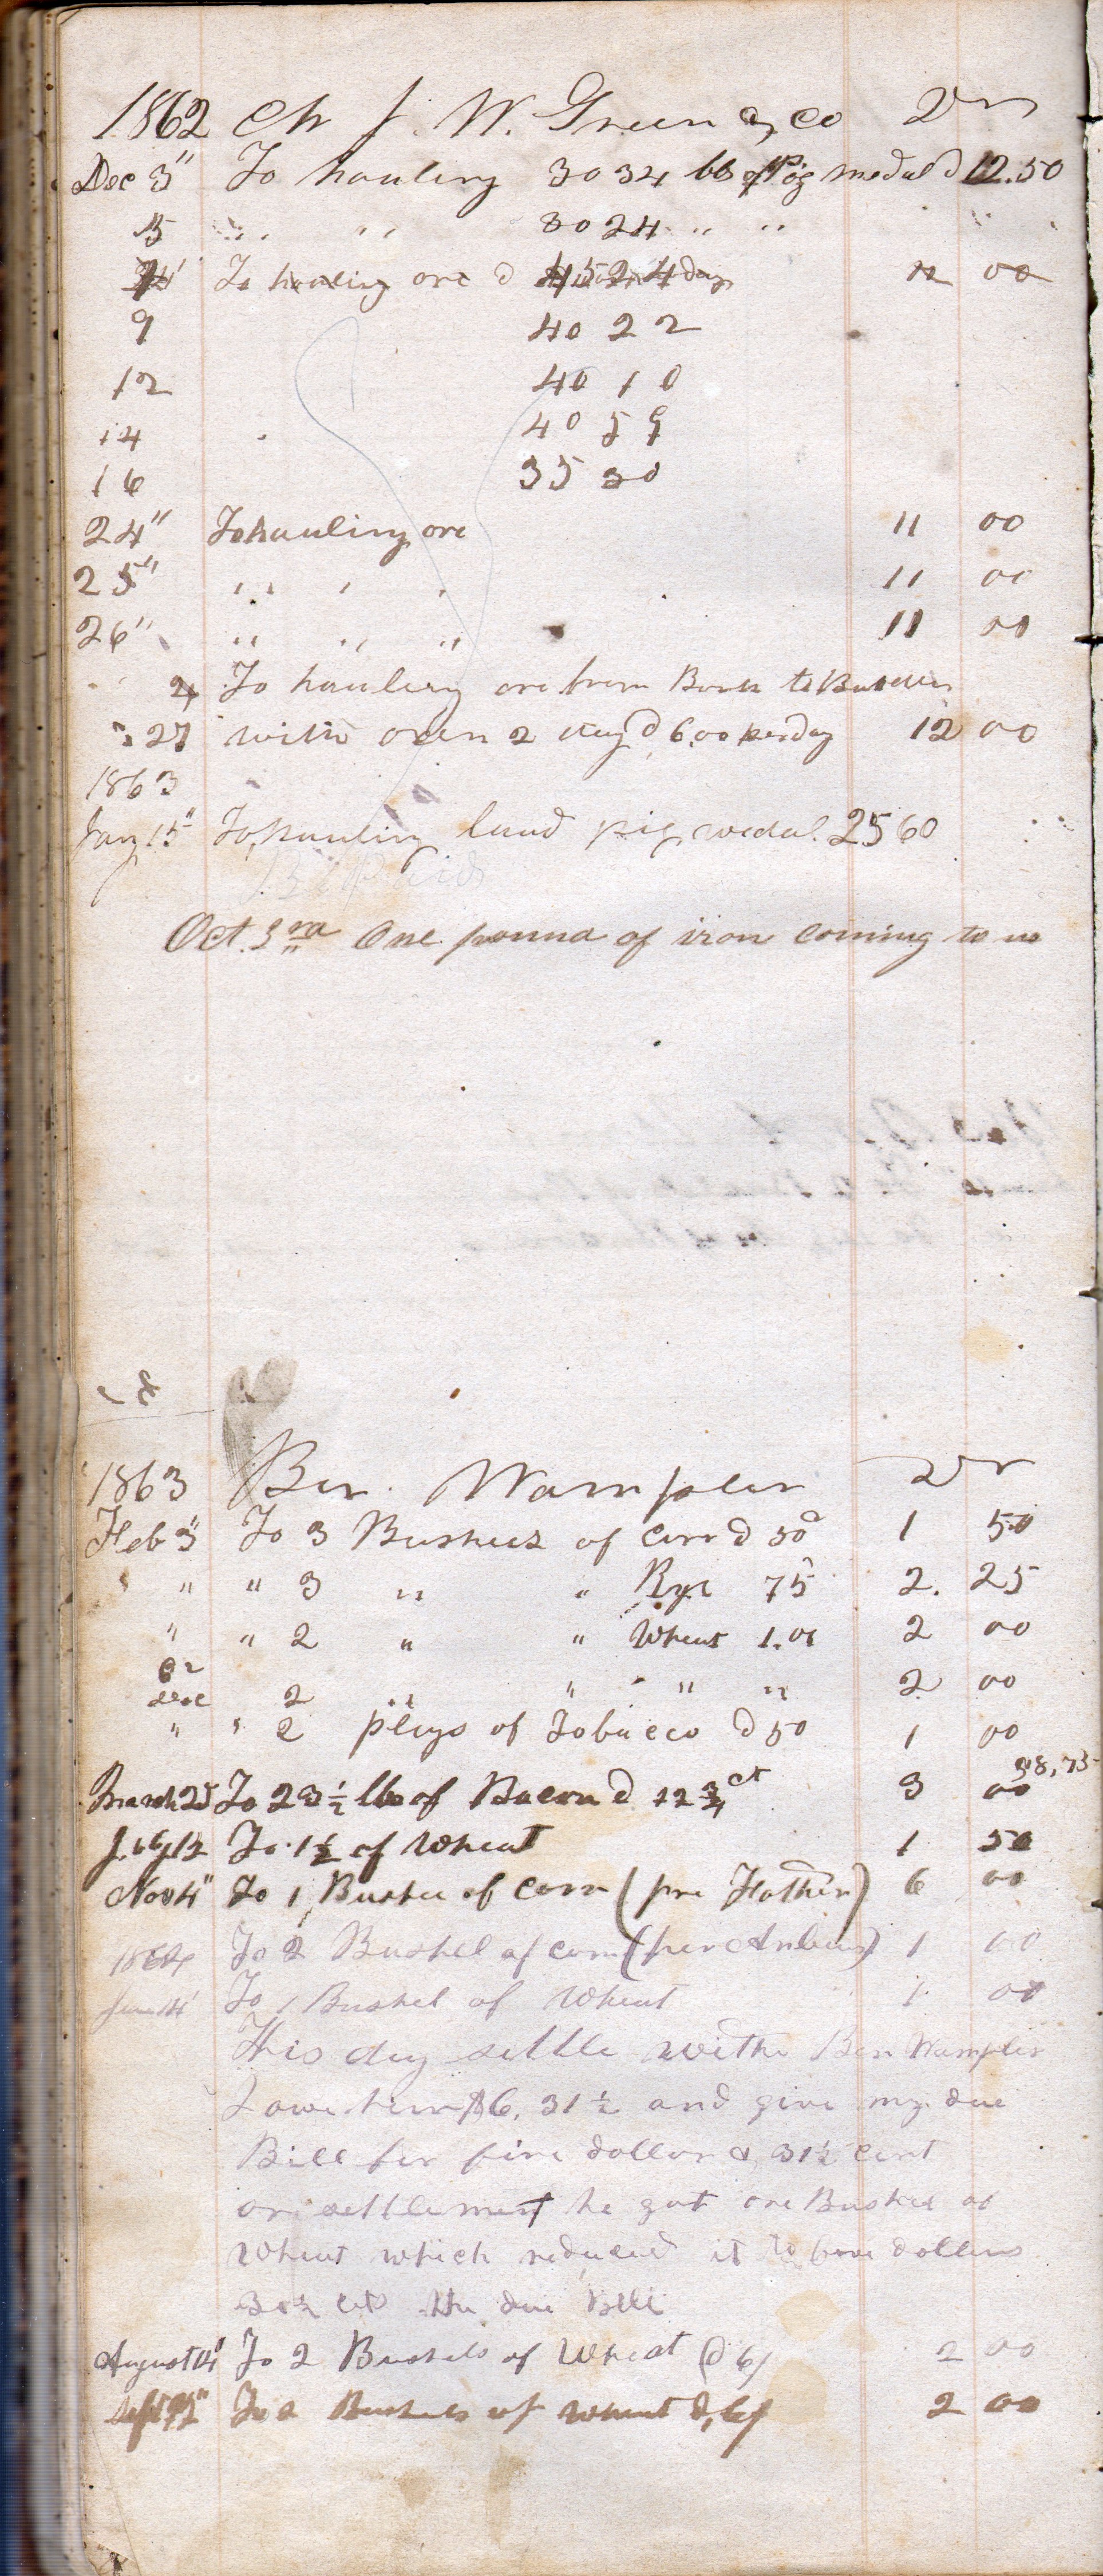 1862 J. W. Green & Co Dr
Dec 3" To hauling 3034 lbs of Pig medal @ 12.50
5 " " 3024 " "
7 To hauling ore @ 4524 12 00
9 40 22
12 40 10
14 40 59
16 35 30
24" To hauling ore 11 00
25" " " " 11 00
26" " " " 11 00
To hauling ore from Bank to
27 with oxen 2 day @ 6.00 per day 12 00
1863
Jan 15" To hauling pig medal 2560
Oct. 3rd One pound of iron coming to us
1863 Ben Wampler Dr
Feb 3" To 3 Bushels of corn @ 50 1 50
" " 3 " " Rye 75 2. 25
" " 2 " " Wheat 1.00 2 00
62
Dec 2 " " " " 2 00
" " 2 plugs of Tobacco @ 50 1 00
March 25 To 23 1/2 lbs of Bacon @ 12 3/4 ct 3 00
12 To 1 1/2 of Wheat 1 50
Nov 4" To 1 Bushel of corn (pre Father) 6 00
1864 To 2 Bushel of corn (per 1 00
Jan 14 To 1 Bushel of Wheat 1 00
This day settle withe Ben Wampler
I owe him $6. 31 1/2 and give my due
Bill for five dollar & 31 1/2 cent
on settlement he got one Bushel of
Wheat which reduced it to five dollars
cts the due Bill
August 14" To 2 Bushels of Wheat @ 6/ 2 00
Sept To 2 Bushels of wheat @ 6/ 2 00